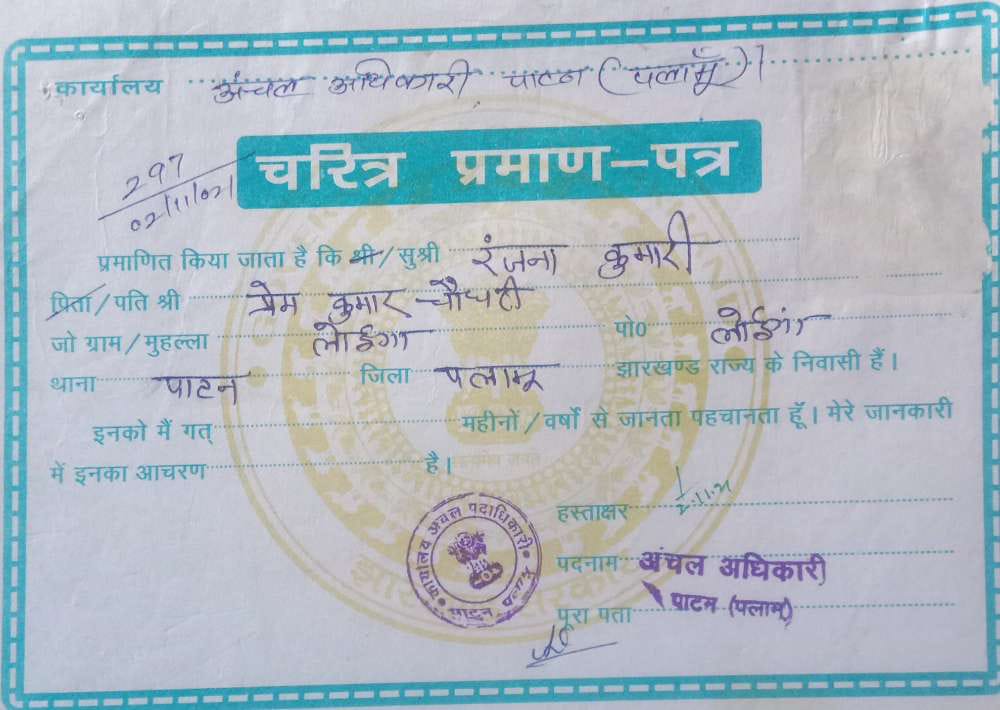 कार्यालय अंचल अधिकारी पाटन (पलामूँ)।
चरित्र प्रमाण-पत्र
297
02/11/021
प्रमाणित किया जाता है कि श्री/सुश्री रंजना कुमारी
पिता/पति श्री प्रेम कुमार चौधरी
जो ग्राम/मुहल्ला लोईंगा पो0 लोईंगा
थाना पाटन जिला पलामू झारखण्ड राज्य के निवासी हैं।
इनको मैं गत् महीनों/वर्षों से जानता पहचानता हूँ। मेरे जानकारी
में इनका आचरण है।
हस्ताक्षर 2.11.21
पदनाम अंचल अधिकारी
पूरा पता पाटन (पलामू)
कार्यालय अंचल पदाधिकारी
पाटन पलामू